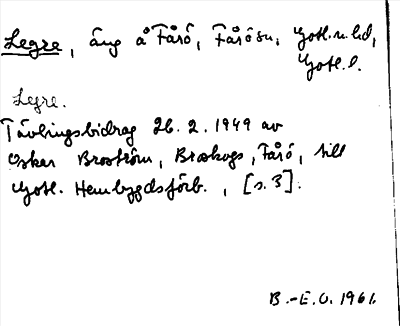 Legre, äng å Fårö, Fårö sn, Gotl. n. hd,
Gotl. l.
Legre.
Tävlingsbidrag 26.2.1949 av
Oskar Broström, Broskogs, Fårö, till
Gotl. Hembygdsförb., [s. 3].
B.-E.O. 1961.